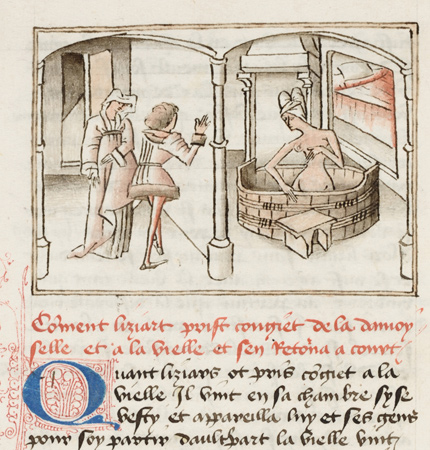 Cõment liziart prist congiet de la damoy
selle et a la vielle et sen Retõna a court
Quant liziars ot pris cõgiet a la
vielle Il vint en sa chambre sy se
vesty et appareilla luy et ses gens
pour soy partir daultpart la vielle vint